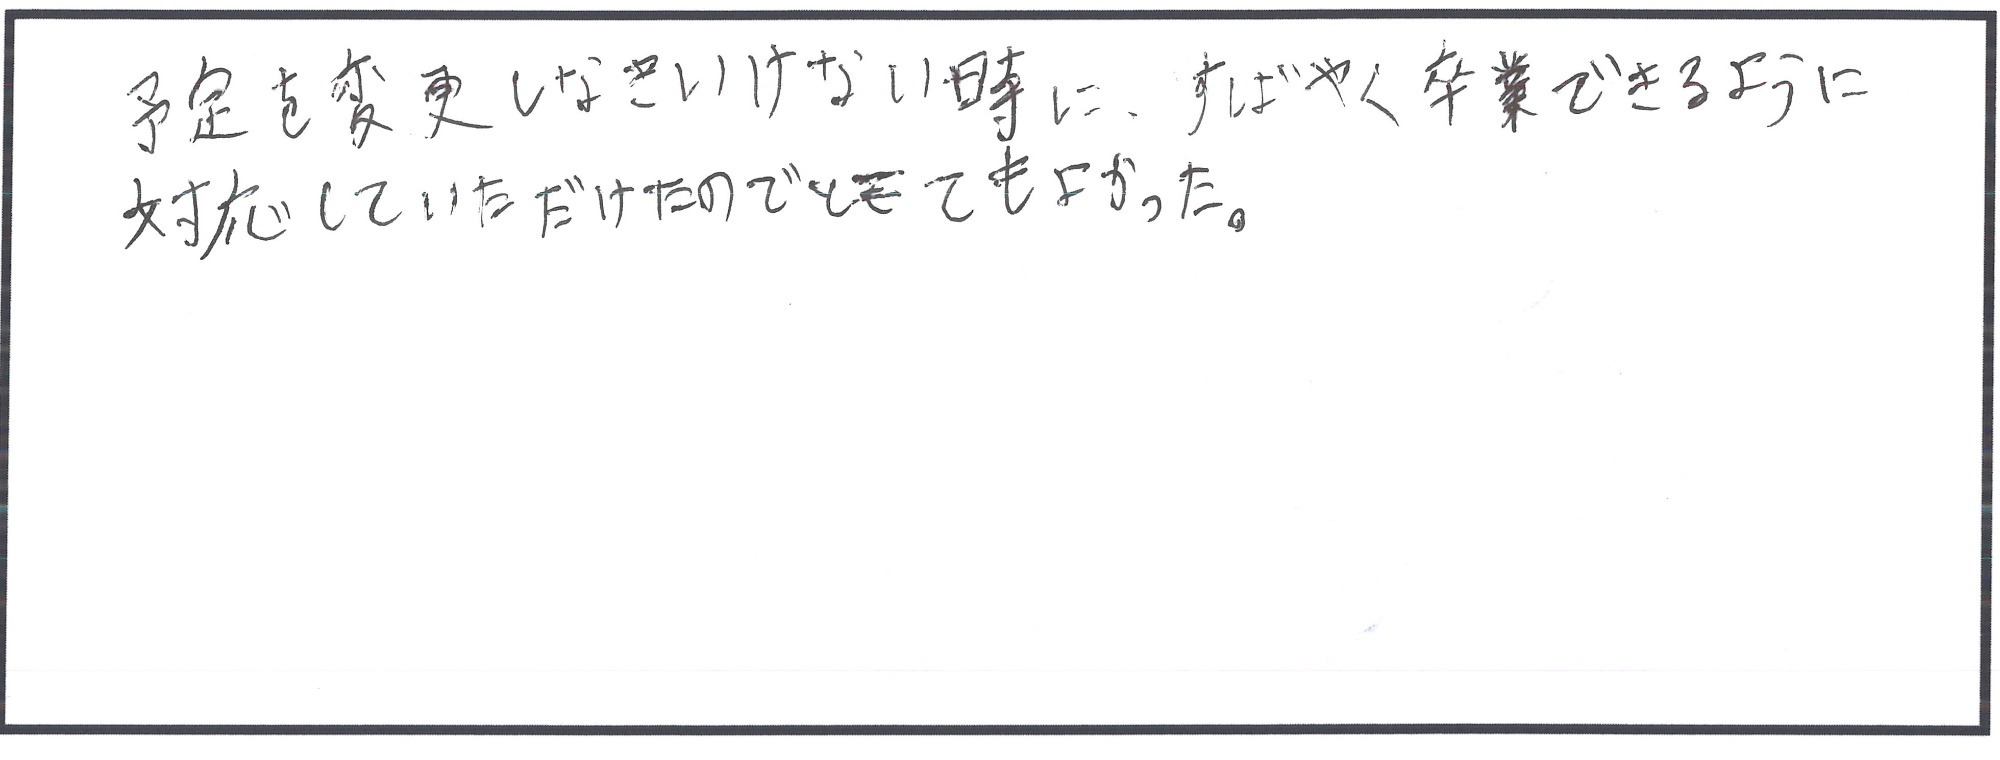 予定を変更しなきいけない時に、すばやく卒業できるように
対応していただけたのでとてもよかった。